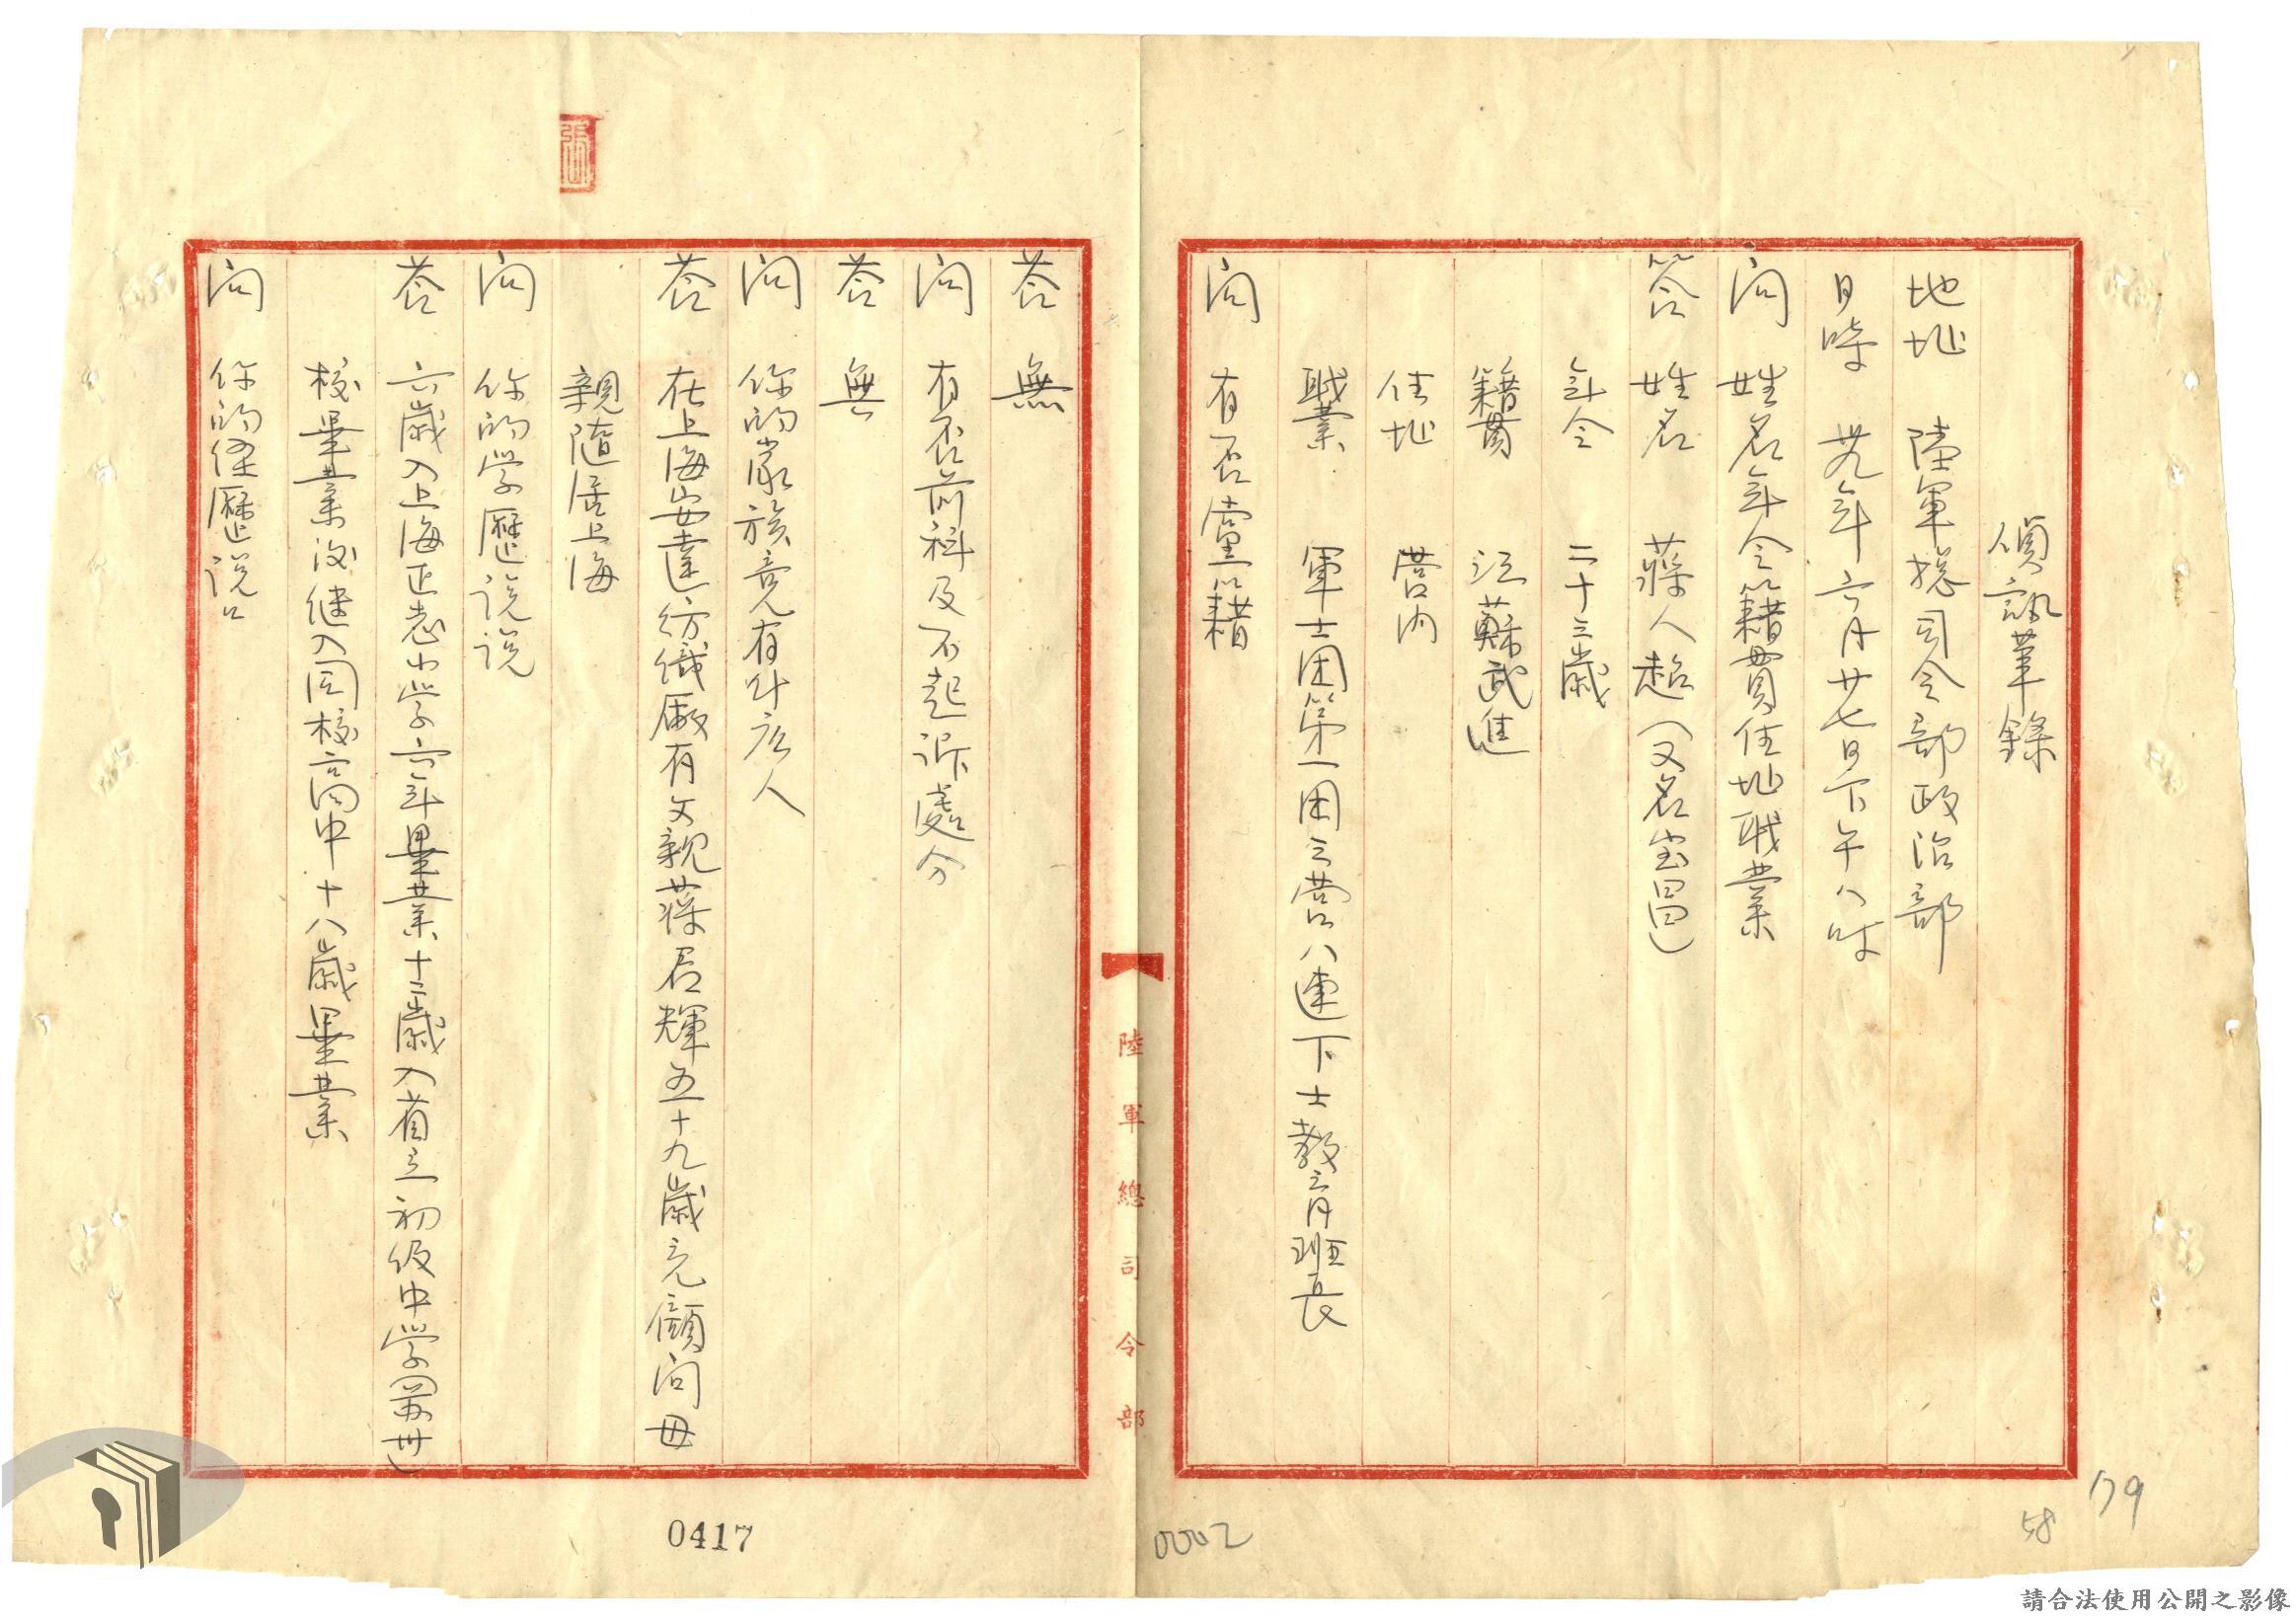 偵訊筆錄
地址 陸軍總司令部政治部
日時 卅九年六月廿七日下午八时
问 姓名年令籍貫住地职業
答 姓名 蔣人超(又名宝昌)
年令 二十三歲
籍貫 江蘇武進
住址 营内
職業 軍士团第一团三营八連下士教育班長
问 有否黨籍
陸軍總司令部
答 無
问 有否前科及不起诉處分
答 無
问 你的家族竟有什広人
答 在上海安達纺織廠有父親蔣君輝五十九歲充顧问母
親隨居上海
问 你的学歷説説
答 六歲入上海正志小学六年畢業十二歲入省立初级中学
校畢業後继入同校高中十八歲畢業
问 你的経歷説
0417
0002
58
179
請合法使用公開之影像